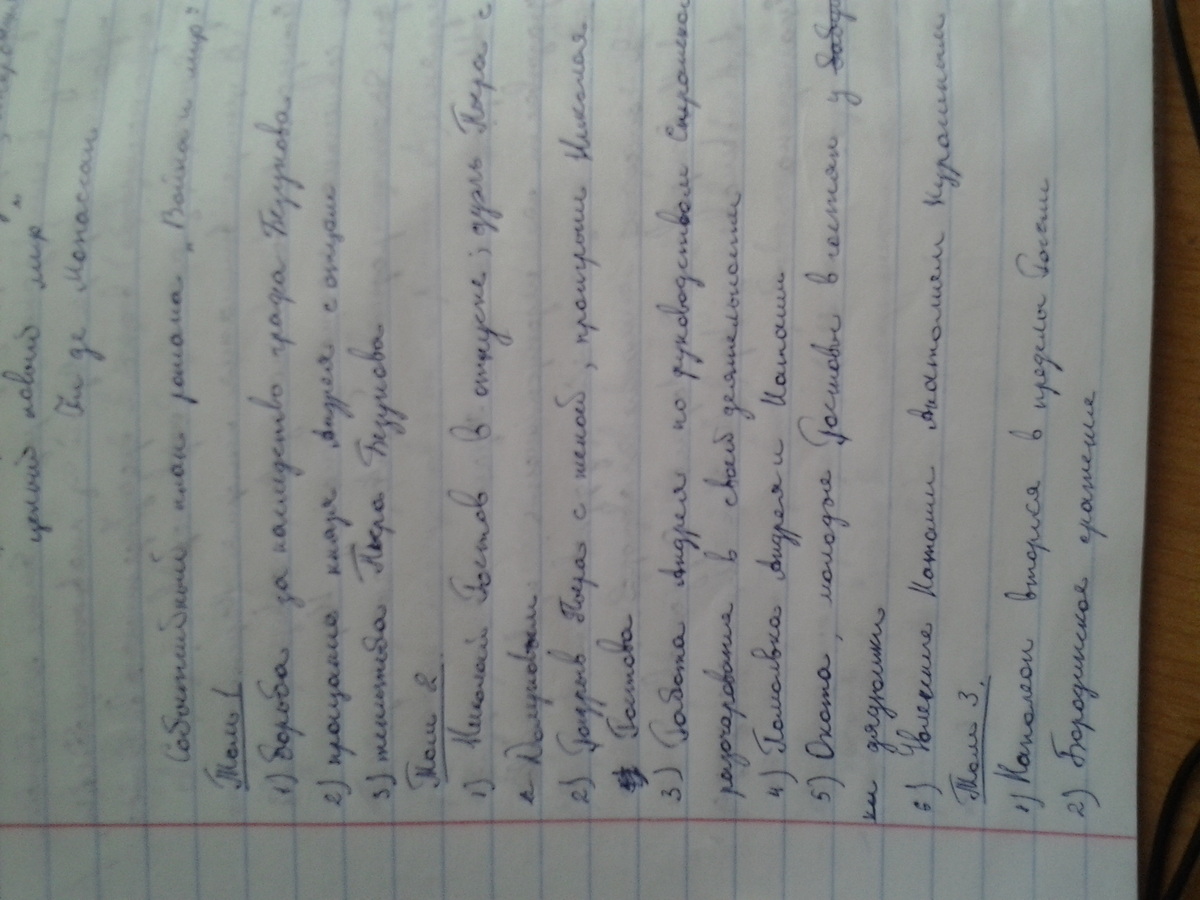 ценный новый мир"
Ги де Мопассан
Событийный план романа „Война и мир"
Том 1
1) Борьба за наследство графа Безухова
2) прощание князя Андрея с отцом
3) женитьба Пьера Безухова
Том 2
1) Николай Ростов в отпуске; дуэль Пьера с
Долоховым
2) Разрыв Пьера с женой; проигрыш Николая
Ростова
3) Работа Андрея по руководством Сперанско
разочарование в своей деятельности
4) Помолвка Андрея и Наташи
5) Охота, молодые Ростовы в гостях у
ки дядюшки
6) Увлечение Наташи Анатолем Курагиным
Том 3.
1) Наполеон вторгся в пределы России
2) Бородинское сражение